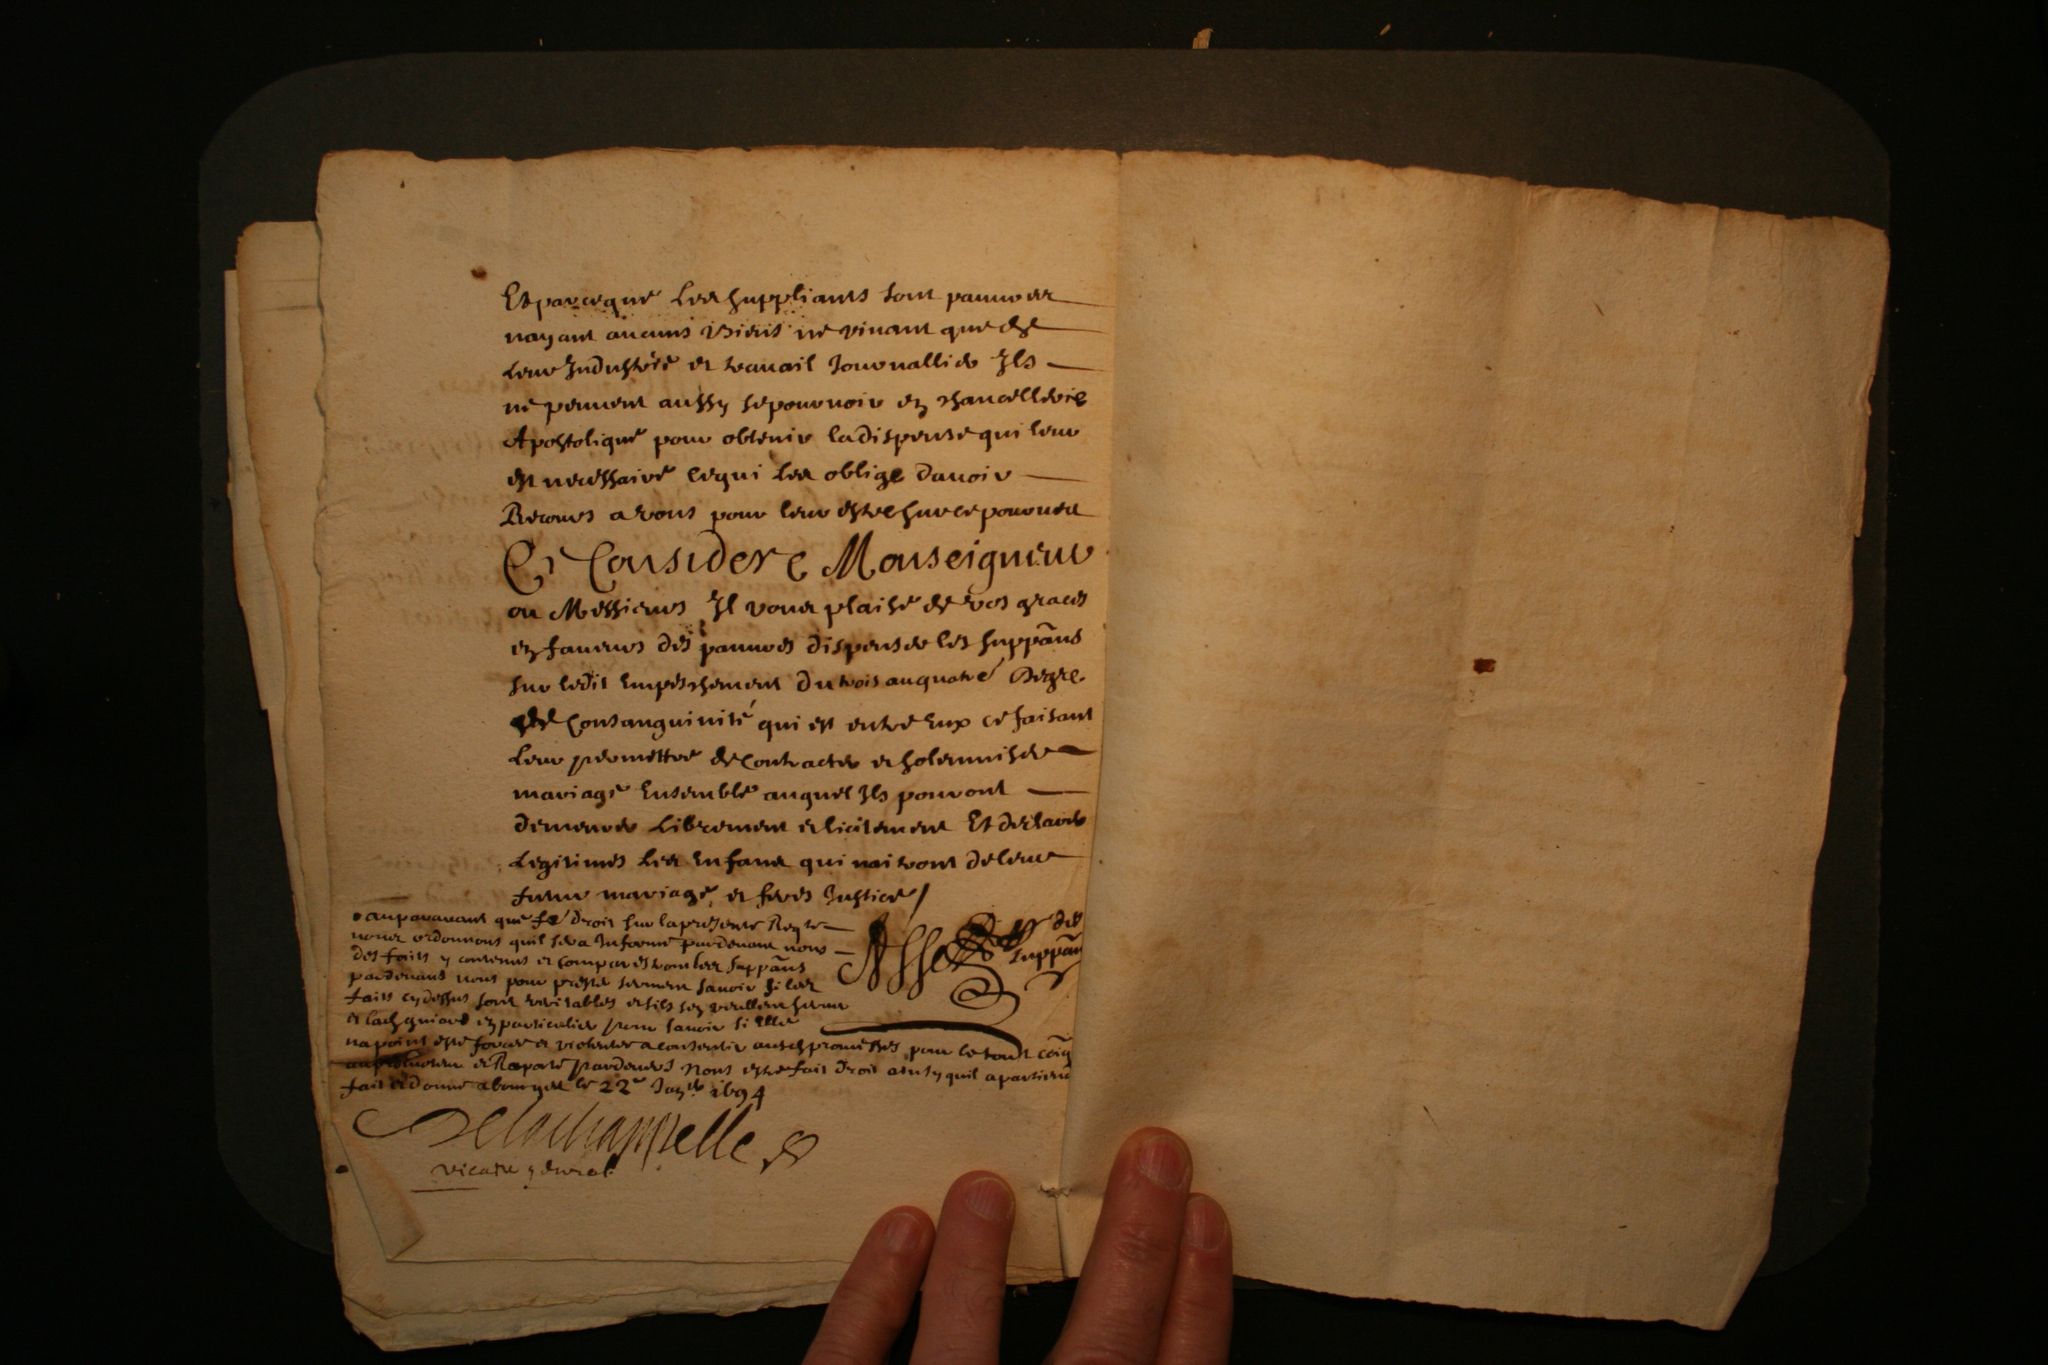 Et parceque les suppliants sont pauures
nayant aucuns biens ne viuant que de
leur Industrie et trauail Journallier Ils
ne peuuent aussy se pouruoir en chancellerie
Apostolique pour obtenir la dispense qui leur
est necessaire ce qui les oblige dauoir
Recours a vous pour leur estre sur ce pourueu
Ce Considere Monseigneur
ou Messieurs Il vous plaise de vos graces
en faueurs des pauures dispenser les suppãns
sur ledit empeschement du trois au quatre Degre
de Consanguinité qui est entre Eux ce faisant
leur permettre de contracter et solemniser
mariage Ensemble auquel Ils pouront
demeurer Librement et licitement Et declarer
Legitimes les Enfans qui naitront de leur
futur mariage et feres Justice /
auparauant que fe droit sur la presente Reqte
nous ordonnons quil sera Informé pardeuant nous
des faits y contenus et comparestront les suppãns
pardeuant nous pour prester serment sauoir si les
faits cy dessus sont veritables et sils sen veullent seruir
et en particulier pour sauoir si elle
na point esté forcée et violentée a consentir ausd promesses pour le tout
et Raporté pardeuers Nous estre fait droit ainsy quil apartiendra
fait et donné a bourges le 22e Janer 1694
des
suppãn
Delachappelle
vicaire general